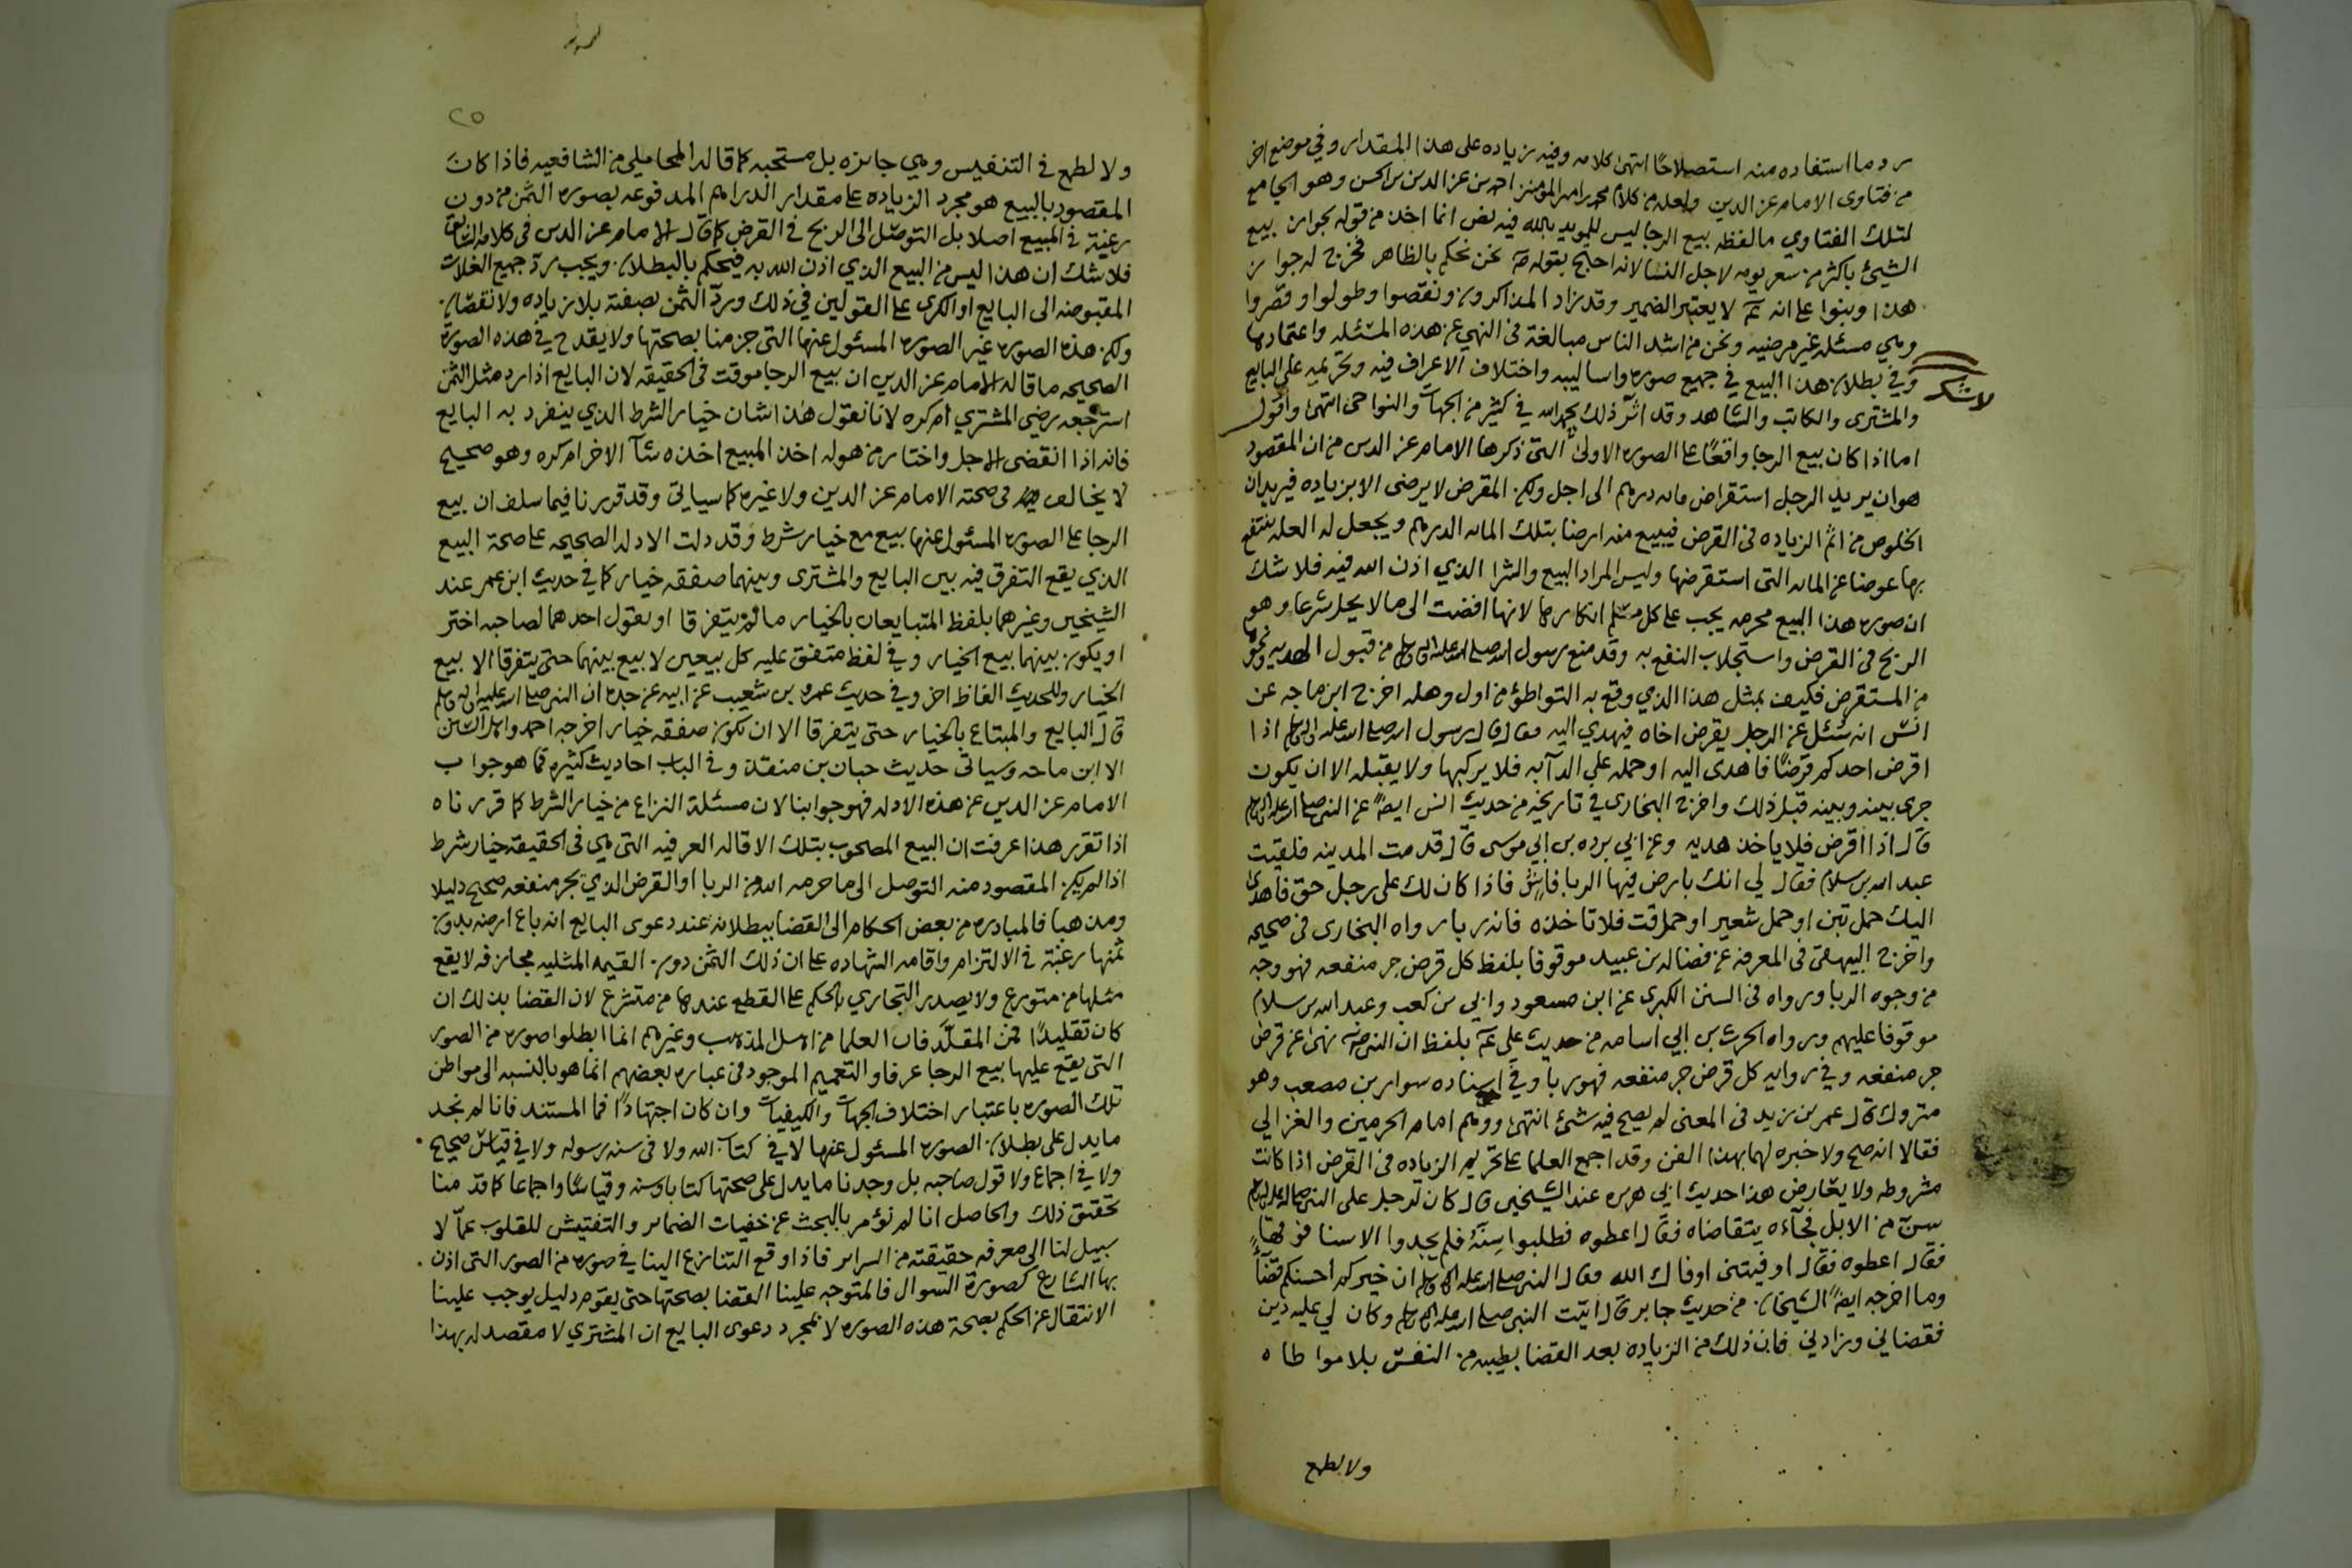 رد ما استفاده منه استصلاحًا انتهى كلامه وفيه زياده على هذا المقدار وفي موضع اخر
من فتاوى الامام عز الدين ولعله من كلام محمد بن امير المومنين احمد بن عز الدين بن الحسن وهو الجامع
لتلك الفتاوي ما لفظه بيع الرجا ليس للمويد بالله فيه نص انما اخذ من قوله بجواز بيع
الشيئ باكثر من سعر يومه لاجل النسا لانه احتج بقوله صلم نحن نحكم بالظاهر فخرج له جواز
هذا وبنوا على انه عم لا يعتبر الضمير وقد زاد المذاكرون ونقصوا وطولوا وقصروا
وهي مسئله غير مرضيه ونحن من اشد الناس مبالغة في النهي عن هذه المسئله واعتمادها
لاشك
وفي بطلان هذا البيع في جميع صوره واساليبه واختلاف الاعراف فيه وتحريمه على البايع
والمشترى والكاتب والشاهد وقد اثر ذلك بحمد الله في كثير من الجهات والنواحي انتهى واقول
اما اذا كان بيع الرجا واقعًا على الصوره الاولى التى ذكرها الامام عز الدين من ان المقصود
هو ان يريد الرجل استقراض مائه درهم الى اجل ولكن المقرض لا يرضى الا بزياده فيريدان
الخلوص من اثم الزياده فى القرض فيبيع منه ارضا بتلك المائه الدرهم ويجعل له الغله ينتفع
بها عوضا عن المائه التى استقرضها وليس المراد البيع والشرا الذي اذن الله فيه فلا شك
ان صوره هذا البيع محرمه يجب على كل مسلم انكارها لانها افضت الى ما لا يحل شرعا وهو
الربح فى القرض واستجلاب النفع به وقد منع رسول الله صلى الله عليه واله وسلم من قبول الهديه ونحوها
من المستقرض فكيف بمثل هذا الذي وقع به التواطؤ من اول وهله اخرج ابن ماجه عن
انس انه سئل عن الرجل يقرض اخاه فيهدي اليه فقال قال رسول الله صلى الله عليه واله وسلم اذا
اقرض احدكم قرضًا فاهدى اليه او حمله على الدآبه فلا يركبها ولا يقبله الا ان يكون
جرى بينه وبينه قبل ذلك واخرج البخاري في تاريخه من حديث انس ايضًا عن النبي صلى الله عليه واله وسلم
قال اذا اقرض فلا ياخذ هديه وعن ابي برده بن ابي موسى قال قدمت المدينه فلقيت
عبد الله بن سلام فقال لي انك بارض فيها الربا فاش فاذا كان لك على رجل حق فاهدى
اليك حمل تبن او حمل شعير او حمل قت فلا تاخذه فانه ربا رواه البخارى فى صحيحه
واخرج البيهقى فى المعرفه عن فضاله بن عبيد موقوفا بلفظ كل قرض جر منفعه فهو وجه
من وجوه الربا ورواه فى السنن الكبرى عن ابن مسعود وابي بن كعب وعبد الله بن سلام
موقوفا عليهم ورواه الحرث بن ابي اسامه من حديث على عم بلفظ ان النبي صلم نهى عن قرض
جر منفعه وفي روايه كل قرض جر منفعه فهو ربا وفي اسناده سوار بن مصعب وهو
متروك قال عمر بن زيد فى المغنى لم يصح فيه شئ انتهى ووهم امام الحرمين والغزالي
فقالا انه صح ولا خبره لهما بهذا الفن وقد اجمع العلما على تحريم الزياده فى القرض اذا كانت
مشروطه ولا يعارض هذا حديث ابي هريره عند الشيخين قال كان لرجل على النبي صلى الله عليه واله وسلم
سن من الابل فجآءه يتقاضاه فقال اعطوه فطلبوا سِنَّهُ فلم يجدوا الا سنا فوقهآ
فقال اعطوه فقال اوفيتنى اوفاك الله فقال النبي صلى الله عليه واله وسلم ان خيركم احسنكم قضآءً
وما اخرجه ايضًا الشيخان من حديث جابر قال اتيت النبي صلى الله عليه واله وسلم وكان لي عليه دين
فقضاني وزادني فان ذلك من الزياده بعد القضا بطيبه من النفس بلا مواطاه
ولا لطمع
٢٥
ولا لطمع فى التنفيس وهي جايزه بل مستحبه كما قاله المحاملي من الشافعيه فاذا كان
المقصود بالبيع هو مجرد الزياده على مقدار الدراهم المدفوعه بصوره الثمن من دون
رغبة فى المبيع اصلا بل التوصل الى الربح فى القرض كما قال الامام عز الدين فى كلامه السابق
فلا شك ان هذا ليس من البيع الذي اذن الله به فيحكم بالبطلان ويجب رد جميع الغلات
المقبوضه الى البايع او الكرى على القولين في ذلك ورد الثمن بصفته بلا زياده ولا نقصان
ولكن هذه الصوره غير الصوره المسئول عنها التى جزمنا بصحتها ولا يقدح في هذه الصوره
الصحيحه ما قاله الامام عز الدين ان بيع الرجا موقت فى الحقيقه لان البايع اذا رد مثل الثمن
استرجعه رضي المشتري ام كره لانا نقول هذا شان خيار الشرط الذي ينفرد به البايع
فانه اذا انقضى الاجل واختار من هو له اخذ المبيع اخذه شآ الاخر ام كره وهو صحيح
لا يخالف فى صحته الامام عز الدين ولا غيره كما سياتي وقد قررنا فيما سلف ان بيع
الرجا على الصوره المسئول عنها بيع مع خيار شرط وقد دلت الادله الصحيحه على صحة البيع
الذي يقع التفرق فيه بين البايع والمشترى وبينهما صفقه خيار كما في حديث ابن عمر عند
الشيخين وغيرهما بلفظ المتبايعان بالخيار ما لم يتفرقا او يقول احدهما لصاحبه اختر
او يكون بينهما بيع الخيار وفي لفظ متفق عليه كل بيعين لا بيع بينهما حتى يتفرقا الا بيع
الخيار وللحديث الفاظ اخر وفي حديث عمرو بن شعيب عن ابيه عن جده ان النبي صلى الله عليه واله وسلم
قال البايع والمبتاع بالخيار حتى يتفرقا الا ان تكون صفقه خيار اخرجه احمد واهل السنن
الا ابن ماجه وسياتى حديث حبان بن منقذ وفي الباب احاديث كثيره فما هو جواب
الامام عز الدين عن هذه الادله فهو جوابنا لان مسئلة النزاع من خيار الشرط كما قررناه
اذا تقرر هذا عرفت ان البيع المصحوب بتلك الاقاله العرفيه التى هي فى الحقيقة خيار شرط
اذا لم يكن المقصود منه التوصل الى ما حرمه الله من الربا او القرض الذي يجر منفعه صحيح دليلا
ومذهبا فالمبادره من بعض الحكام الى القضا ببطلانه عند دعوى البايع انه باع ارضه بدون
ثمنها رغبة فى الالتزام واقامه الشهاده على ان ذلك الثمن دون القيمه المثليه مجازفه لا يقع
مثلها من متورع ولا يصدر التجاري بالحكم على القطع عندها من متشرع لان القضا بذلك ان
كان تقليدًا فمن المقلَّد فان العلما من اهل المذهب وغيرهم انما ابطلوا صوره من الصور
التى يقع عليها بيع الرجا عرفا والتعميم الموجود فى عباره بعضهم انما هو بالنسبه الى مواطن
تلك الصوره باعتبار اختلاف الجهات والكيفيات وان كان اجتهادًا فما المستند فانا لم نجد
ما يدل على بطلان الصوره المسئول عنها لا في كتاب الله ولا فى سنه رسوله ولا في قياس صحيح
ولا في اجماع ولا قول صاحب بل وجدنا ما يدل على صحتها كتابا وسنه وقياسًا واجماعا كما قدمنا
تحقيق ذلك والحاصل انا لم نؤمر بالبحث عن خفيات الضماير والتفتيش للقلوب عمّا لا
سبيل لنا الى معرفه حقيقته من السراير فاذا وقع التنازع الينا في صوره من الصور التى اذن
بها الشارع كصورة السوال فالمتوجه علينا القضا بصحتها حتى يقوم دليل يوجب علينا
الانتقال عن الحكم بصحة هذه الصوره لا لمجرد دعوى البايع ان المشتري لا مقصد له بهذا